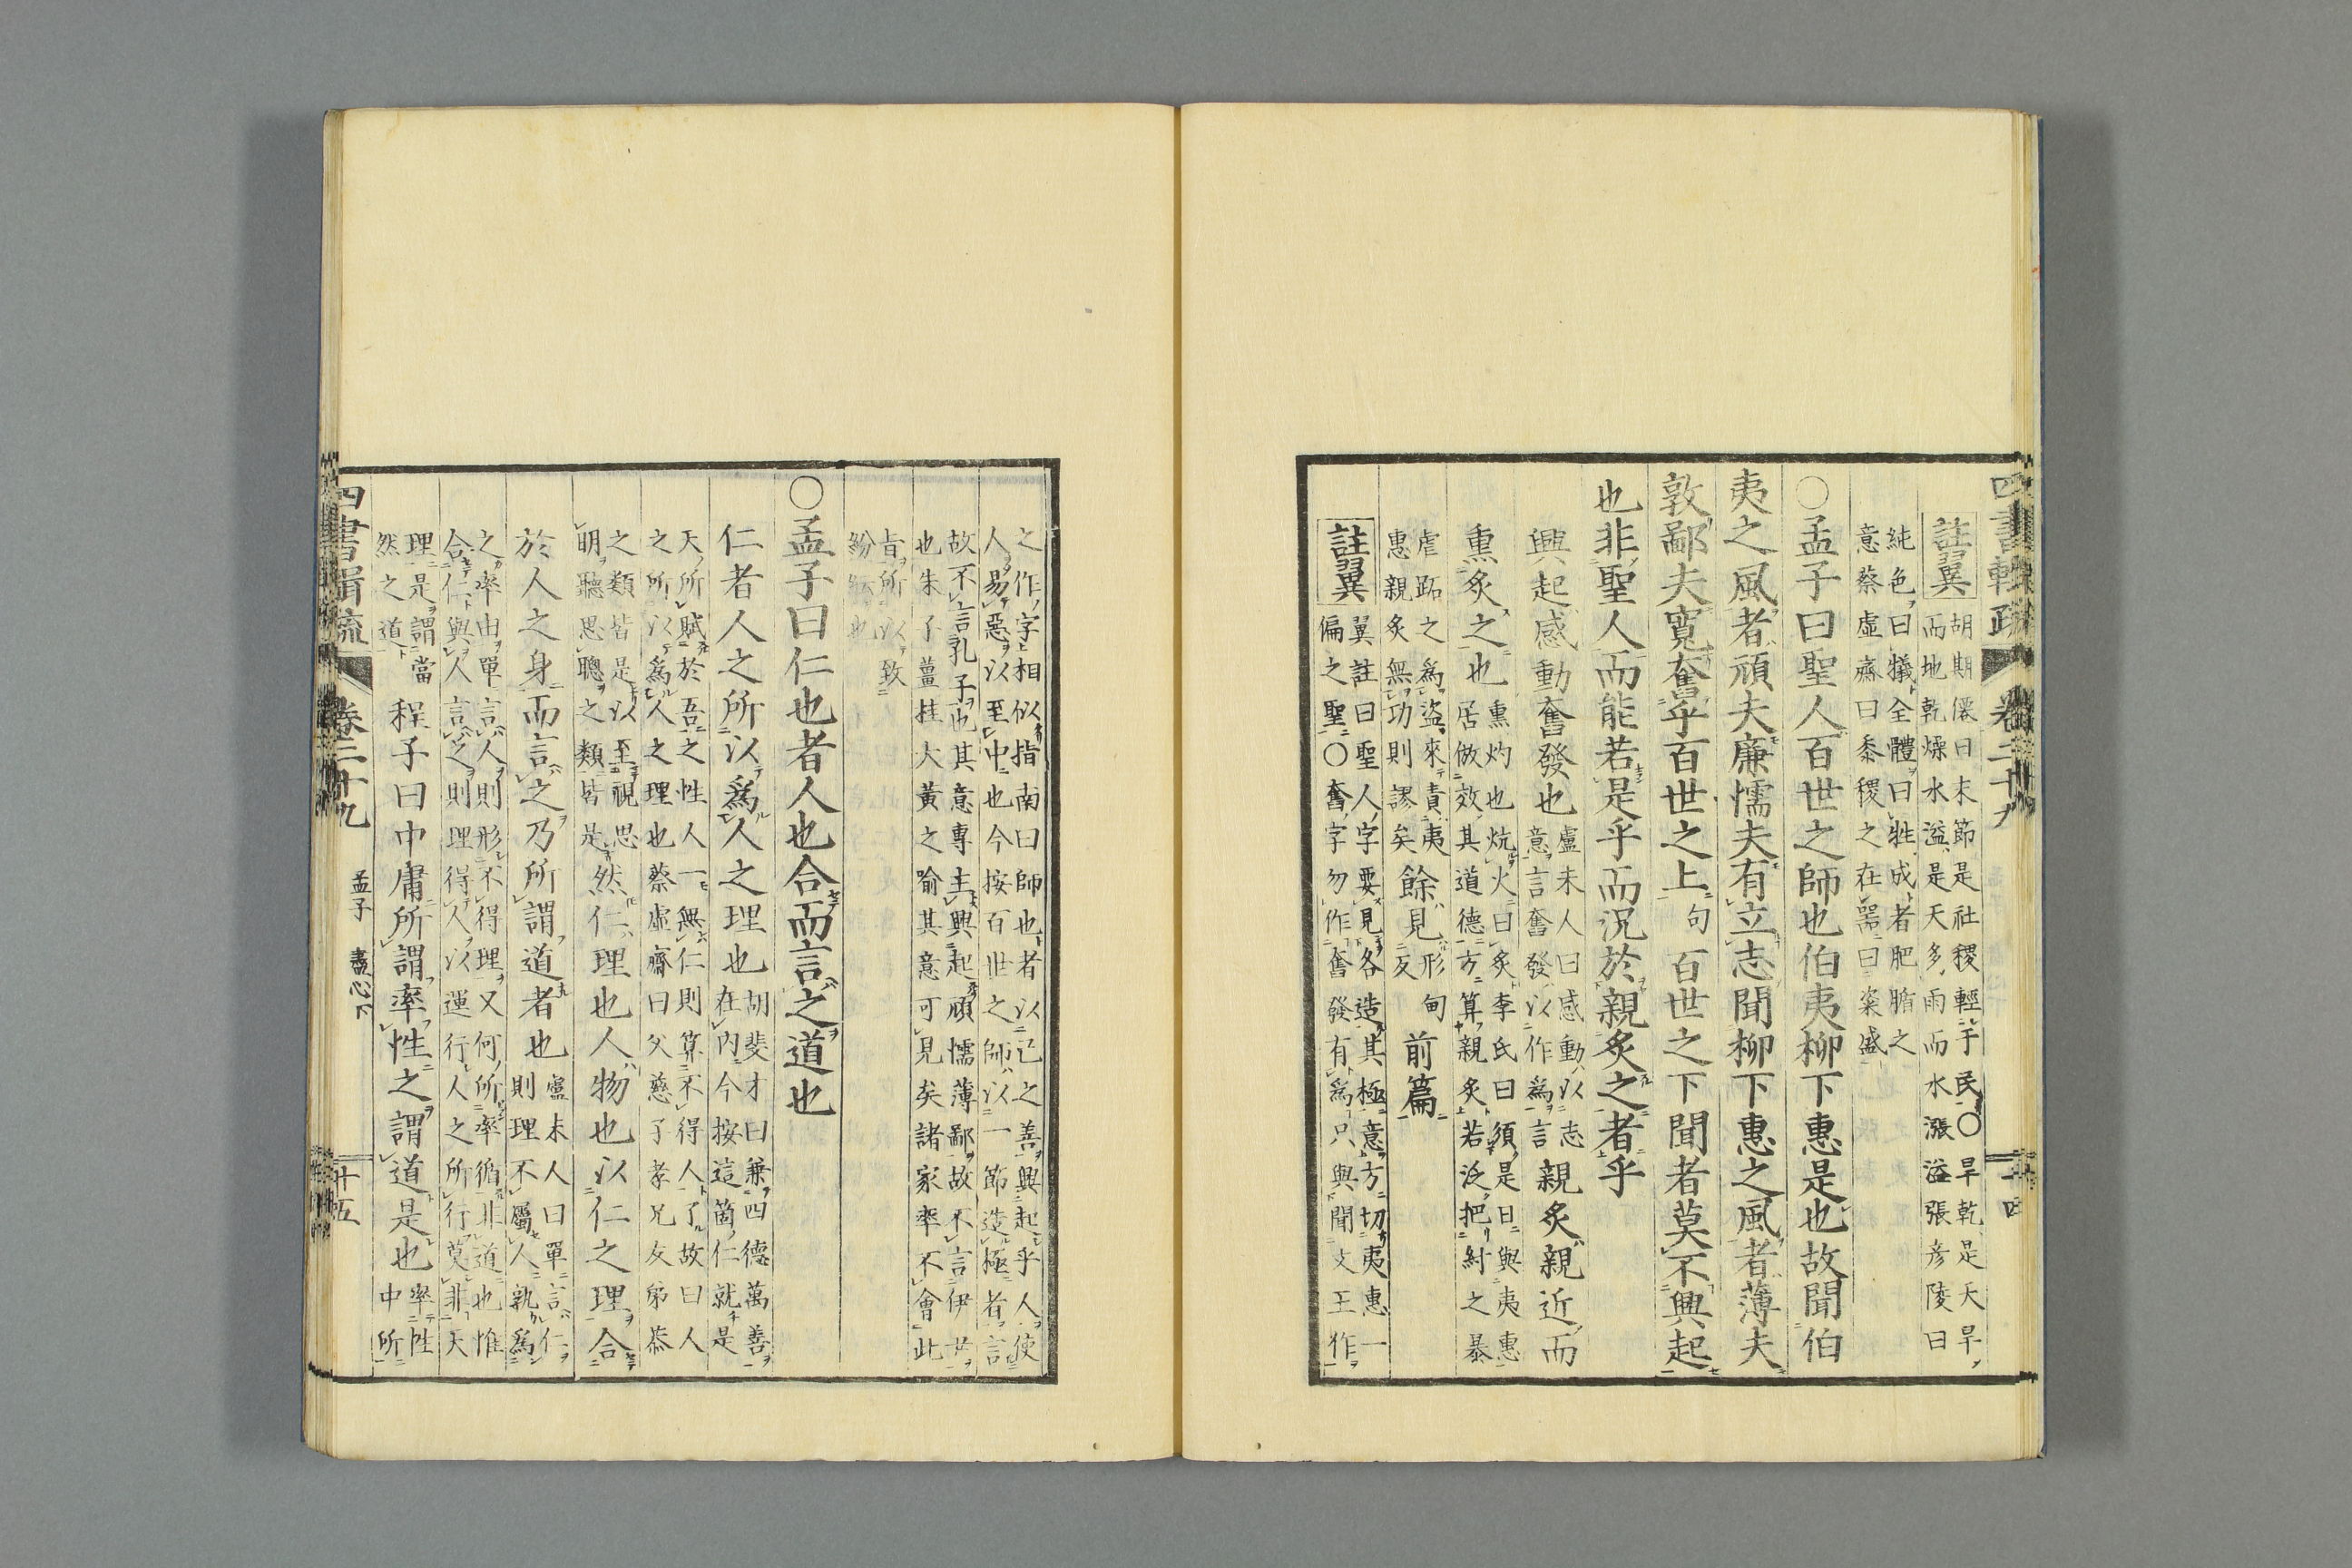 四書輯疏 卷二十九
註翼 胡期僊曰末節是社稷輕于民〇旱乾是天旱
而地乾燥水溢是天多雨而水漲溢張彥陵曰
純色曰犧全體曰牲成者肥腯之
意蔡虛齋曰黍稷之在器曰粢盛
〇孟子曰聖人百世之師也伯夷柳下惠是也故聞伯
夷之風者頑夫廉懦夫有立志聞柳下惠之風者薄夫
敦鄙夫寬奮乎百世之上句百世之下聞者莫不興起
也非聖人而能若是乎而況於親炙之者乎
興起感動奮發也
盧未人曰感動以志
意言奮發以作為言
親炙親近而
熏炙之也
熏灼也炕火曰炙李氏曰須是曰與夷惠
居做效其道德方算親炙若泛把紂之暴
虐跖之為盜來責夷
惠親炙無功則謬矣
餘見
形甸
反
前篇
註翼 翼註曰聖人字要見各造其極意方切夷惠一
偏之聖〇奮字勿作奮發有為只與聞文王作
之作字相似指南曰師也者以己之善興起乎人使
人易惡以至中也今按百世之師以一節造極者言
故不言孔子也其意專主興起頑懦薄鄙故不言伊世
也朱子薑桂大黃之喻其意可見矣諸家率不會此
旨所以致
紛紜也
〇孟子曰仁也者人也合而言之道也
仁者人之所以為人之理也
胡斐才曰兼四德萬善
在內今按這箇仁就是
天所賦於吾之性人一無仁則算不得人了故曰人
之所以為人之理也蔡虛齋曰父慈子孝兄友弟恭
之類皆是以至視思
明聽思聰之類皆是
然仁理也人物也以仁之理合
於人之身而言之乃所謂道者也
盧未人曰單言仁
則理不屬人孰為
之率由單言人則形不得理又何所率循非道也惟
合仁與人言之則理得人以運行人之所行莫非天
理是謂當
然之道
程子曰中庸所謂率性之謂道是也
率性
中所
四書輯疏 卷二十九 孟子 盡心下 廿五